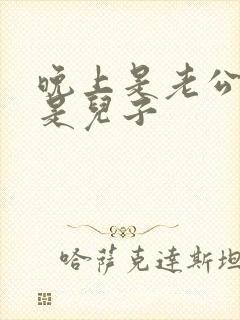 晚上是老公
是兒子
哈萨克達斯坦